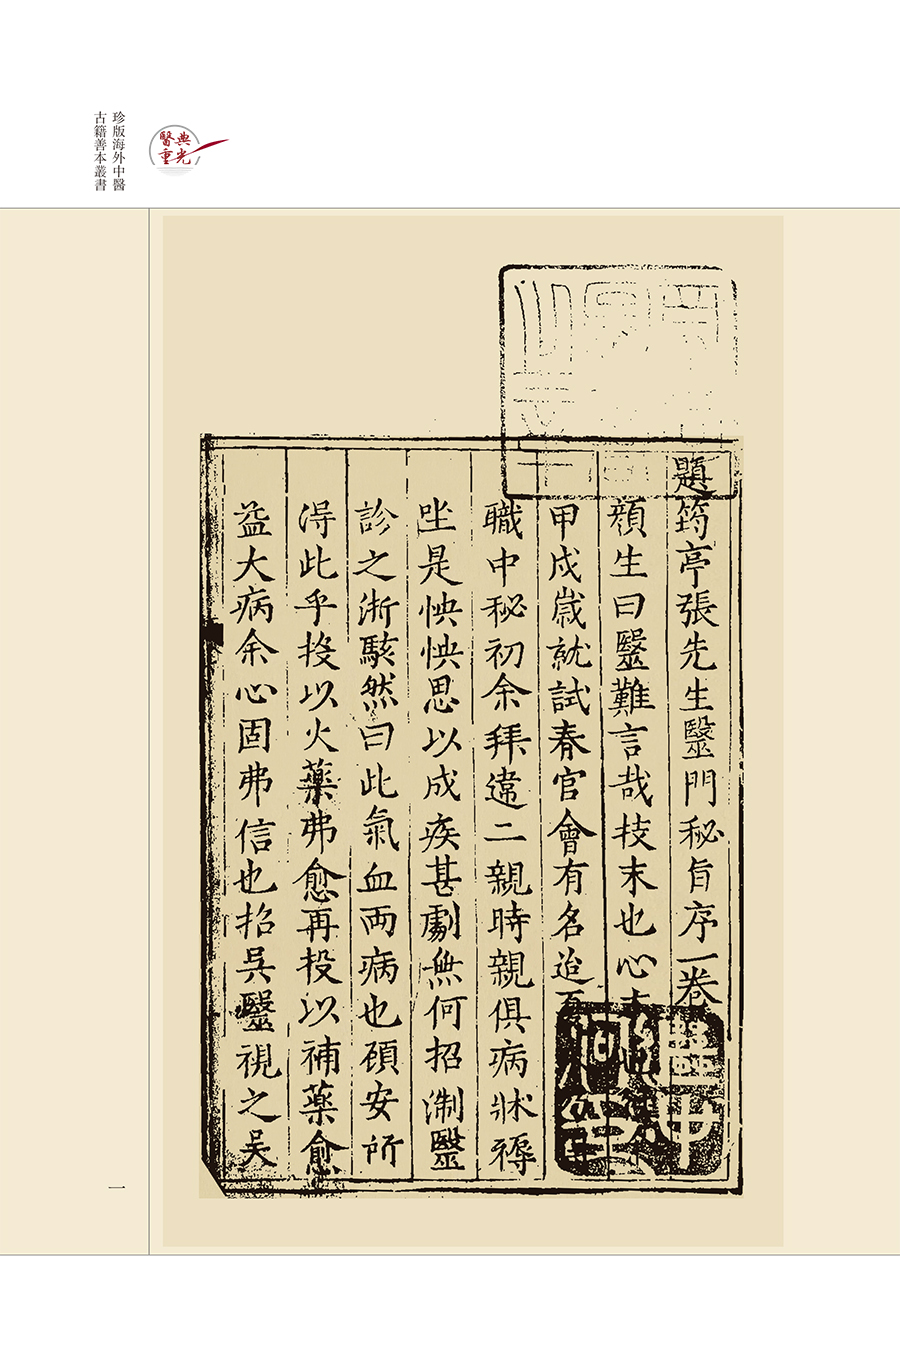 珍版海外中醫
古籍善本叢書
醫典
重光
題筠亭張先生毉門秘旨序一卷
顏生曰毉難言哉技末也心
甲戌歲就試春官會有名迨
職中秘初余拜違二親時親俱病牀褥
坐是怏怏思以成疾甚劇無何招淛毉
診之淅駭然曰此氣血兩病也碩安所
淂此乎投以火藥弗愈再投以補藥愈
益大病余心固弗信也招吳毉視之吴
一